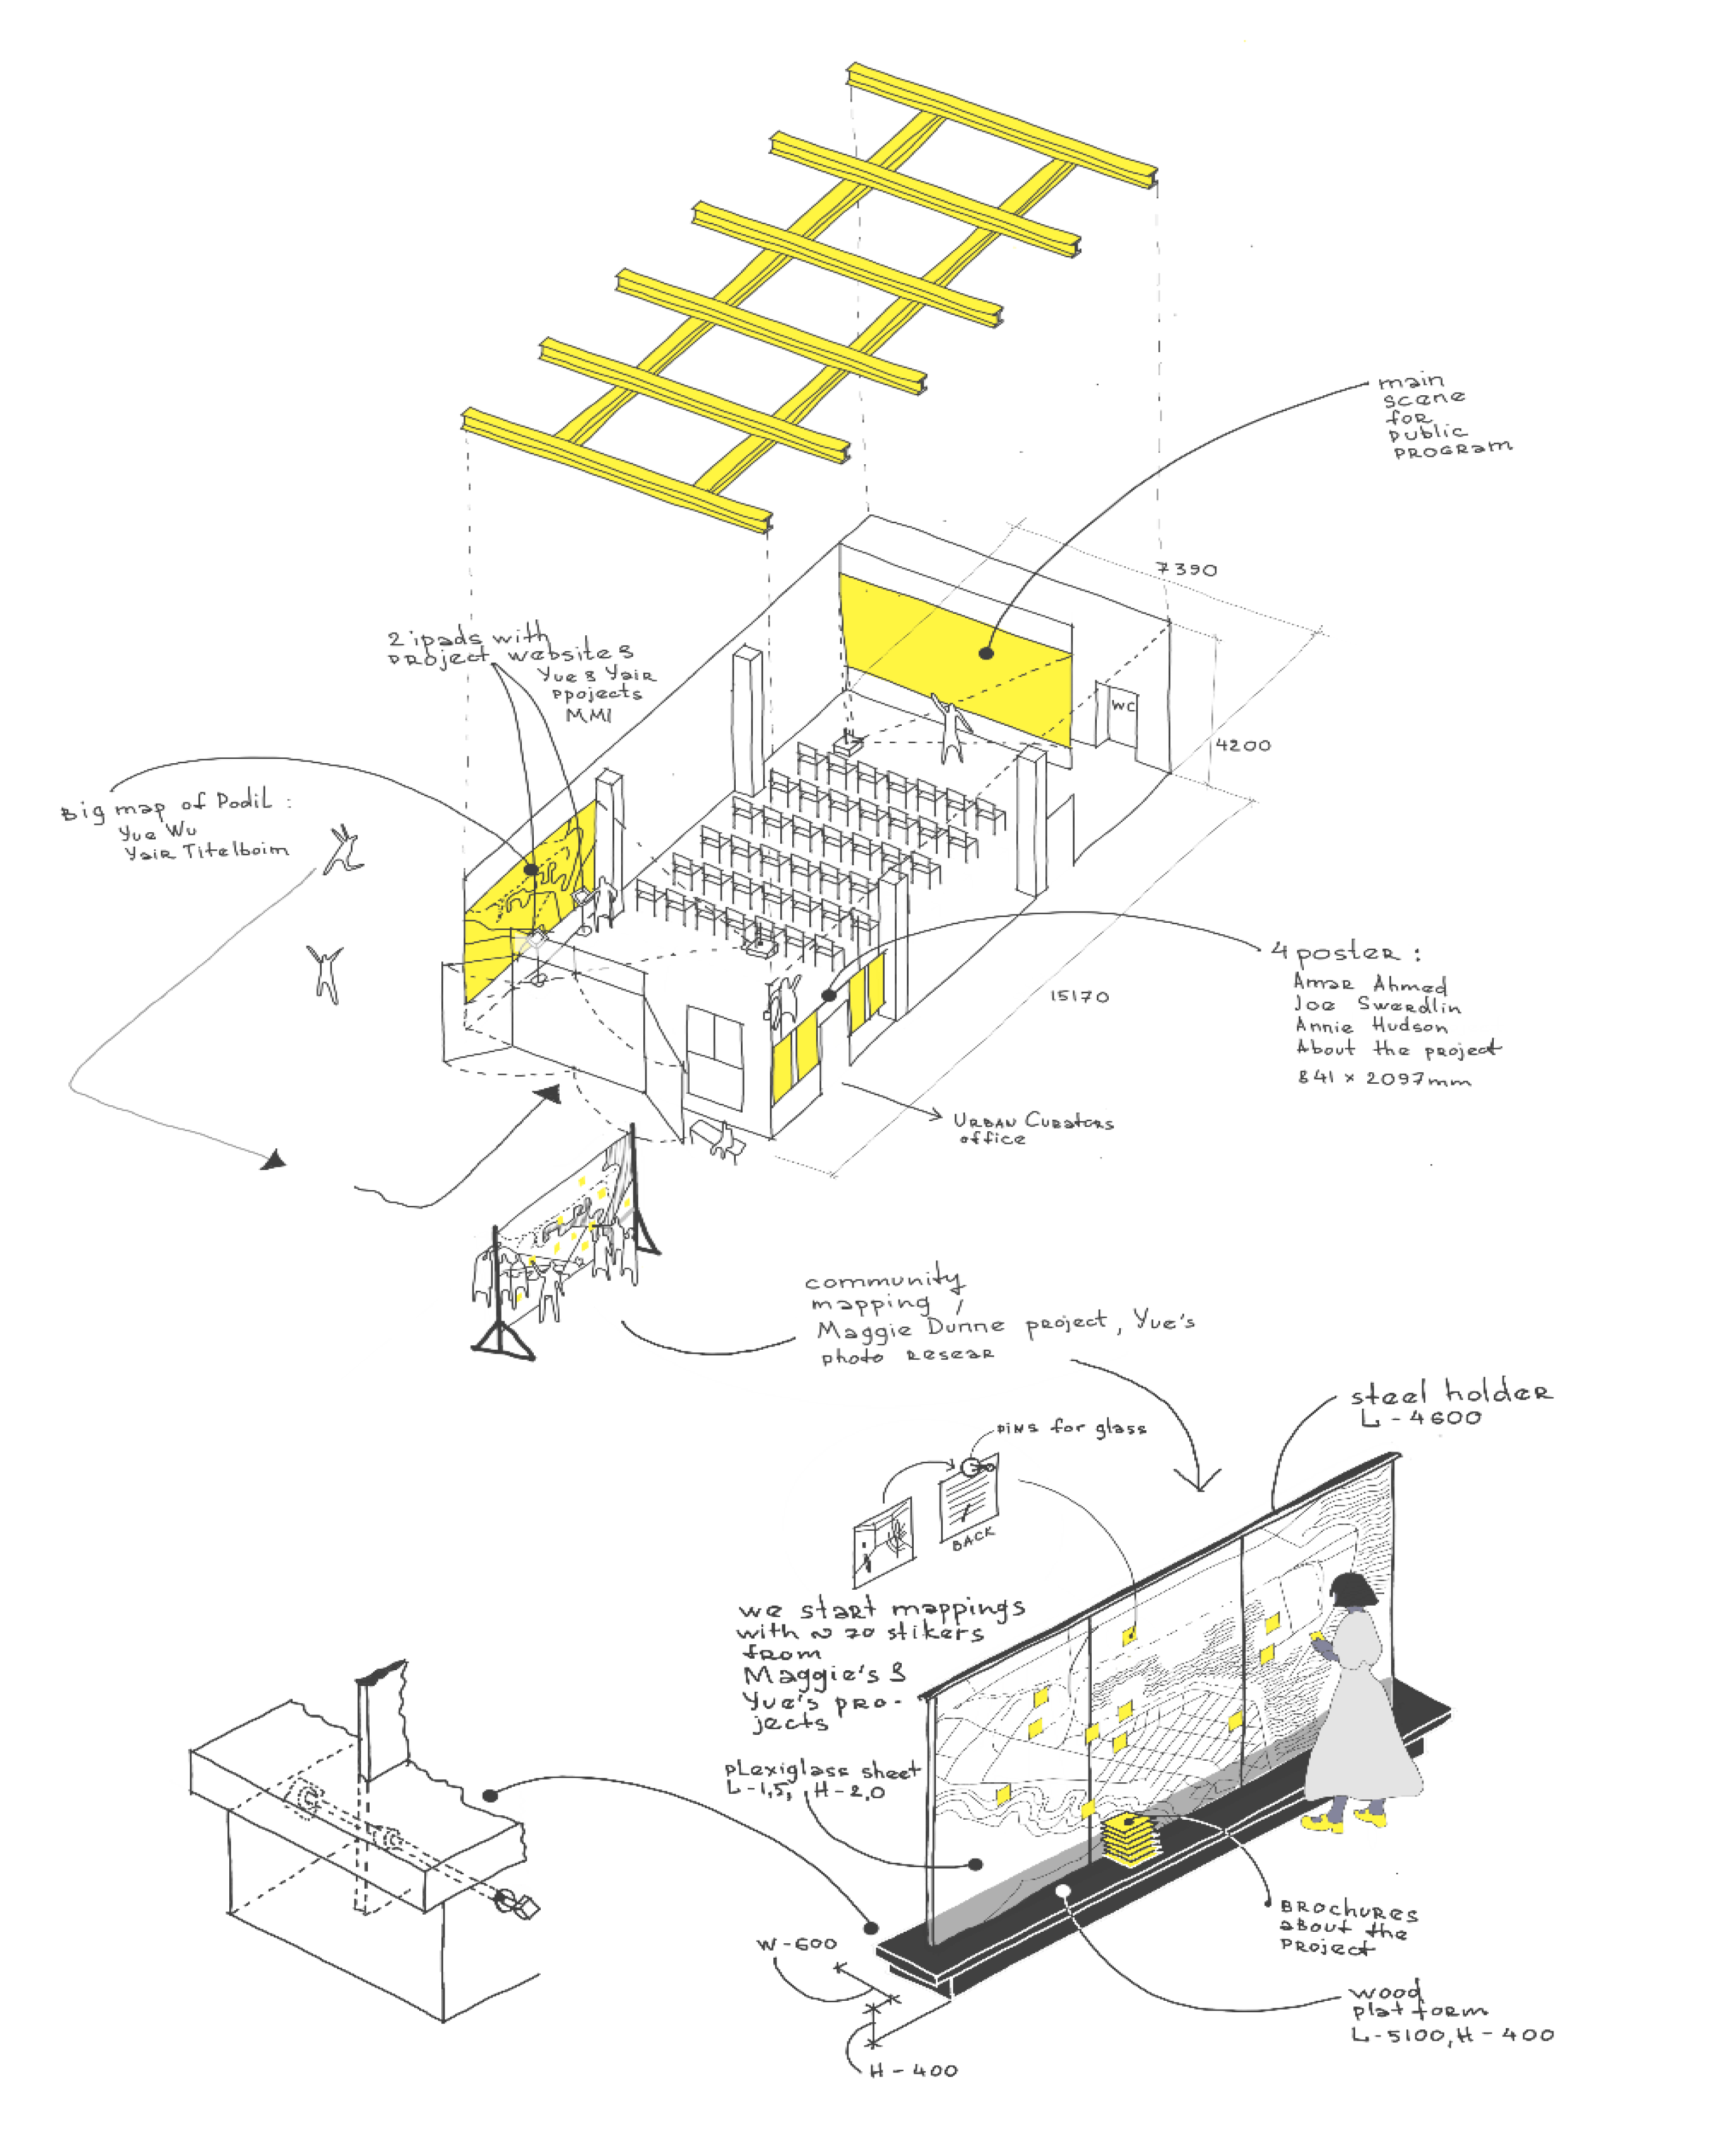 main
scene
for
public
program
7390
2 ipads with
project website &
Yue & Yair
ppojects
MMI
WC
4200
Big map of Podil :
Yue Wu
Yair Titelboim
4 poster :
Amar Ahmed
Joe Swerdlin
Annie Hudson
About the project
841 × 2097mm
15170
Urban Curators
office
community
mapping /
Maggie Dunne project, Yue's
photo resear
steel holder
L - 4600
pins for glass
BACK
we start mappings
with ~ 20 stikers
from
Maggie's &
Yue's pro-
jects
plexiglass sheet
L-1,5, H-2,0
W-600
Brochures
about the
project
wood
platform
L-5100, H-400
H - 400